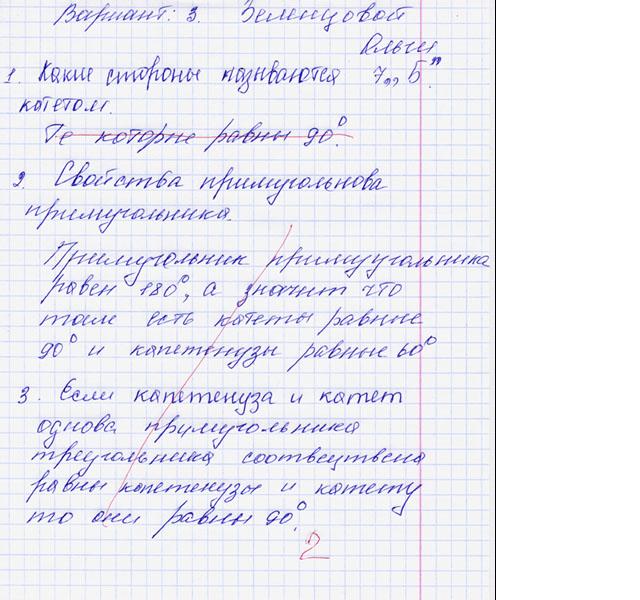 Вариант: 3. Зеленцовой
Ольги
1. Какие стороны называются 7 „Б".
катетом.
Те которые равны 90°.
2. Свойства примугольнова
примугольника.
Примугольник примуугольника
равен 180°, а значит что
там есть катеты равные
90° и капетенузы равные 60°
3. Если капетенуза и катет
однова примугольника
треугольника соотвецтвена
равны капетенузы и катету
то они равны 90°.
2